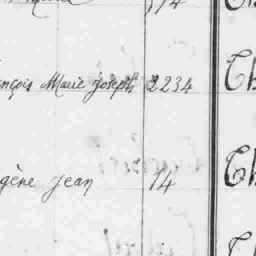 nçois Marie Joseph 2234 Ch
gène Jean 14 Ch